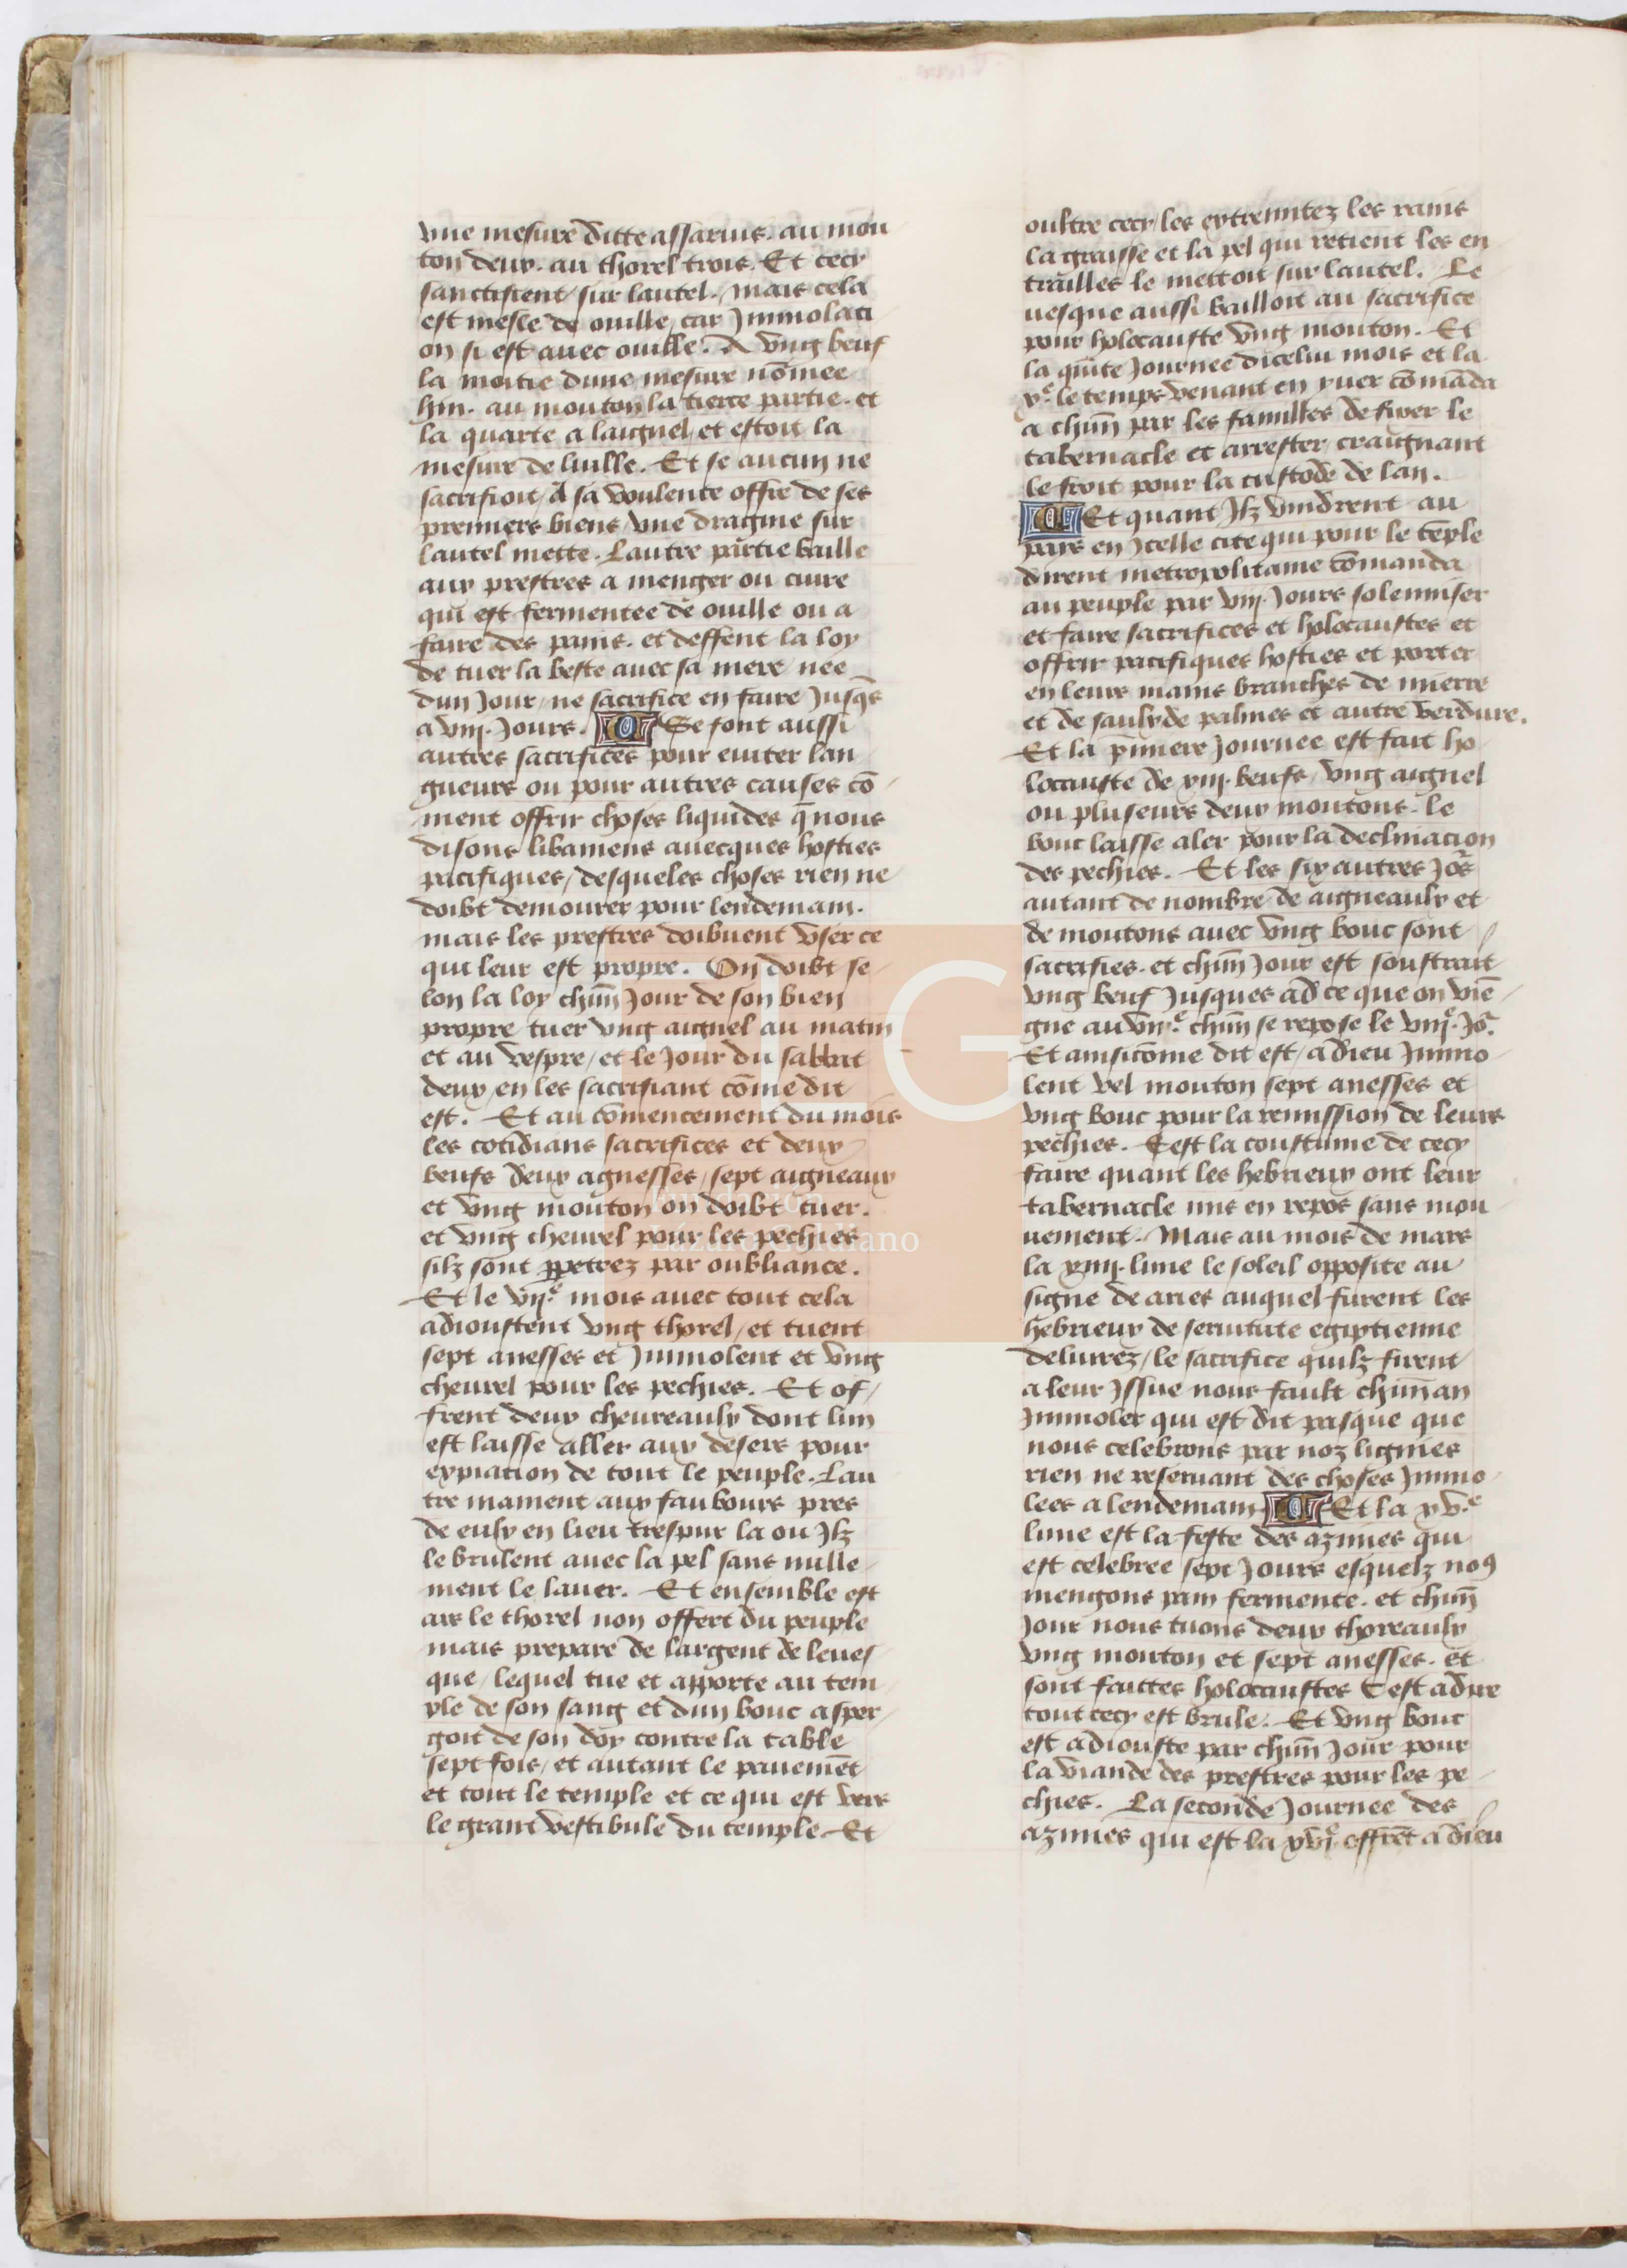 vne mesure ditte assarius. au mou
ton deux. au thorel trois. Et cecy
sanctifient / sur lautel. mais cela
est mesle de ouille / car Jmmolati
on si est auec ouille. A vng beuf
la moitie dune mesure nōmee
hin. au mouton la tierce partie. et
la quarte a laignel / et estoit la
mesure de luille. Et se aucun ne
sacrifioit / A sa voulente offre de ses
premiers biens / vne dragme sur
lautel mette. Lautre partie baille
aux prestres a menger ou cuire
qui est fermentee de ouille ou a
faire des pains. et deffent la loy
de tuer la beste auec sa mere / nee
dun Jour / ne sacrifice en faire Jusq̄s
a viij. Jours. Se font aussi
autres sacrifices pour euiter lan
gueurs ou pour autres causes cō
ment offrir choses liquides q̄ nous
disons libamens auecques hosties
pacifiques / desqueles choses rien ne
doibt demourer pour lendemain.
mais les prestres doibuent vser ce
qui leur est propre. On doibt se
lon la loy chūn Jour de son bien
propre tuer vng aignel au matin
et au vespre / et le Jour du sabbat
deux / en les sacrifiant cōme dit
est. Et au cōmencement du mois
les cotidians sacrifices et deux
beufs deux agnesses / sept aigneaux
et vng mouton on doibt tuer.
et vng cheurel pour les pechies
silz sont ꝑpetrez par oubliance.
Et le vijᵉ. mois auec tout cela
adioustent vng thorel / et tuent
sept anesses et Jmmolent et vng
cheurel pour les pechies. Et of /
frent deux cheureaulx dont lun
est laisse aller aux desers pour
expiation de tout le peuple. Lau
tre mainent aux faubours pres
de eulx en lieu trespur la ou Jlz
le brulent auec la pel sans nulle
ment le lauer. Et ensemble est
ars le thorel non offert du peuple
mais prepare de largent de leues
que / lequel tue et apporte au tem
ple de son sang et dun bouc asper
goit de son doy contre la table
sept fois / et autant le pauemēt
et tout le temple et ce qui est vers
le grant vestibule du temple. Et
oultre cecy / les extremitez les rains
la graisse et la pel qui retient les en
trailles le mettoit sur lautel. Le
uesque aussi bailloit au sacrifice
pour holocauste vng mouton. Et
la quīte Journee dicelui mois et la
xᵉ. le temps venant en yuer cōmāda
a chūn par les familles de fixer le
tabernacle et arrester craignant
le froit pour la custode de lan.
Et quant Jlz vindrent au
pays en Jcelle cite qui pour le tēple
dirent metropolitaine cōmanda
au peuple par viij. Jours solemniser
et faire sacrifices et holocaustes et
offrir pacifiques hosties et porter
en leurs mains branches de mierre
et de saulx de palmes et autre verdure.
Et la p̄miere Journee est fait ho
locauste de xiij. beufs / vng aignel
ou pluseurs deux moutons. le
bouc laisse aler pour la declinacion
des pechies. Et les six autres Jōs
autant de nombre de aigneaulx et
de moutons auec vng bouc sont
sacrifies. et chūn Jour est soustrait
vng beuf Jusques ad ce que on viē
gne au vijᵉ. chūn se repose le viijᵉ. Jō.
Et ainsi cōme dit est / a dieu Jmmo
lent vel mouton sept anesses et
vng bouc pour la remission de leurs
pechies. Cest la coustume de cecy
faire quant les hebrieux ont leur
tabernacle mis en repos sans mou
uement. Mais au mois de mars
la xiiij. lune le soleil opposite au
signe de aries auquel furent les
hebrieux de seruitute egiptienne
deliurez / le sacrifice quilz firent
a leur Jssue nous fault chūn an
Jmmoler qui est dit pasque que
nous celebrons par noz lignies
rien ne reseruant des choses Jmmo
lees a lendemain Et la xvᵉ.
lune est la feste des azimes qui
est celebree sept Jours esquelz noꝰ
mengons pain fermente. et chūn
Jour nous tuons deux thoreaulx
vng mouton et sept anesses. et
sont faittes holocaustes Cest adire
tout cecy est brule. Et vng bouc
est adiouste par chūn Jour pour
la viande des prestres pour les pe
chies. La seconde Journee des
azimes qui est la xvjᵉ. offrēt a dieu
FLG
Fundación
Lázaro Galdiano